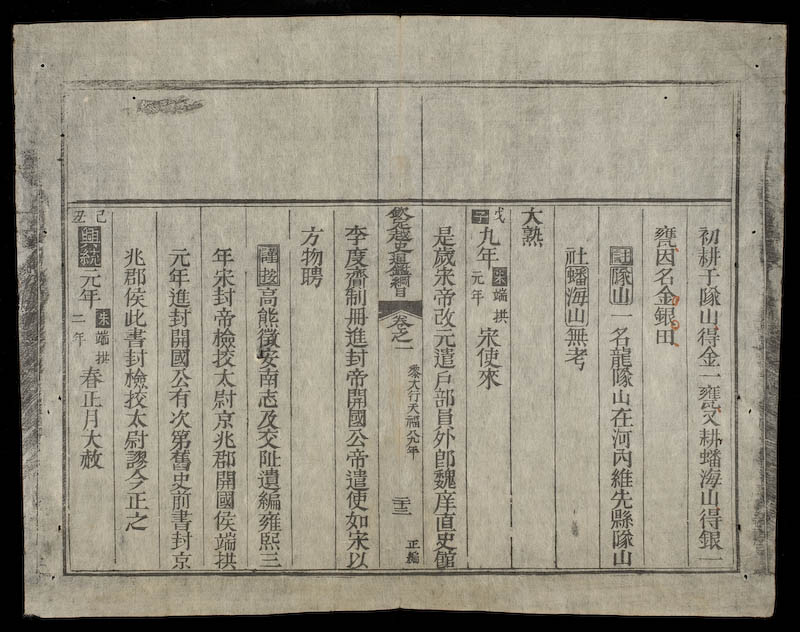 初耕于隊山得金一甕又耕蟠海山得銀一
甕因名金銀田
註隊山一名龍隊山在河內維先縣隊山
社蟠海山無考
大熟
戊子九年宋端拱元年宋使來
是歲宋帝改元遣戶部員外郎魏庠直史館
欽定越史通鑑綱目 卷之一 黎大行天福九年 二十三 正編
李度齎制冊進封帝開國公帝遣使如宋以
方物聘
謹按高熊徵安南志及交阯遺編雍熙三
年宋封帝檢挍太尉京兆郡開國侯端拱
元年進封開國公有次第舊史前書封京
兆郡侯此書封檢挍太尉謬今正之
己丑興統元年宋端拱二年春正月大赦